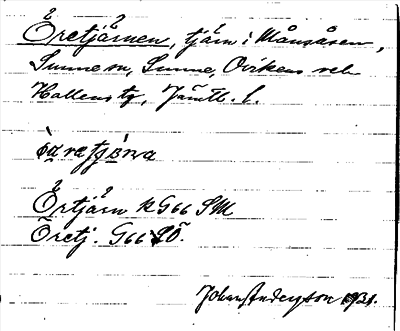 Öretjärnen, tjärn i Månsåsen,
Sunne sn, Sunne, Ovikens och
Hallens tg, Jämtl. l.
Örtjärn k G66 SM
Öretj. G66 SÖ.
Johan Anderzson 1931.